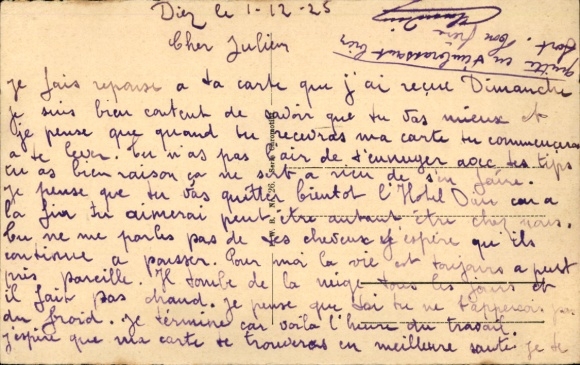 Diez le 1-12-25
Cher Julien
je fais reponse a ta carte que j'ai reçue Dimanche
je suis bien content de savoir que tu vas mieux et
je pense que quand tu recevras ma carte tu commenceras
a te lever. Tu n'as pas l'air de t'ennuyer avec tes tips
tu as bien raison ça ne sert a rien de s'en faire.
je pense que tu vas quitter bientot l'Hotel Dieu car a
la fin tu aimerai peut être autant être chez nous.
tu ne me parles pas de tes cheveux j'espére qu'ils
continue a pousser. Pour moi la vie est toujours a peut
près pareille. Il tombe de la neige tous les jours et
il fait pas chaud. je pense que toi tu ne t'apperçois pas
du froid. je términe car voila l'heure du travail.
j'espère que ma carte te trouveras en meilleure santé je te
quitte en t'embrassant bien
fort. Ton frère